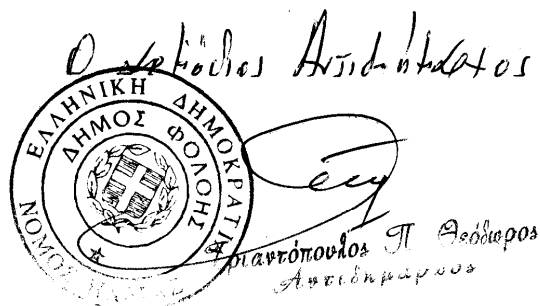 Ο αρμόδιος Αντιδήμαρχος
ΕΛΛΗΝΙΚΗ ΔΗΜΟΚΡΑΤΙΑ
ΔΗΜΟΣ ΦΟΛΟΗΣ
ΝΟΜΟΣ
Π. Θεόδωρος
Αντιδήμαρχος